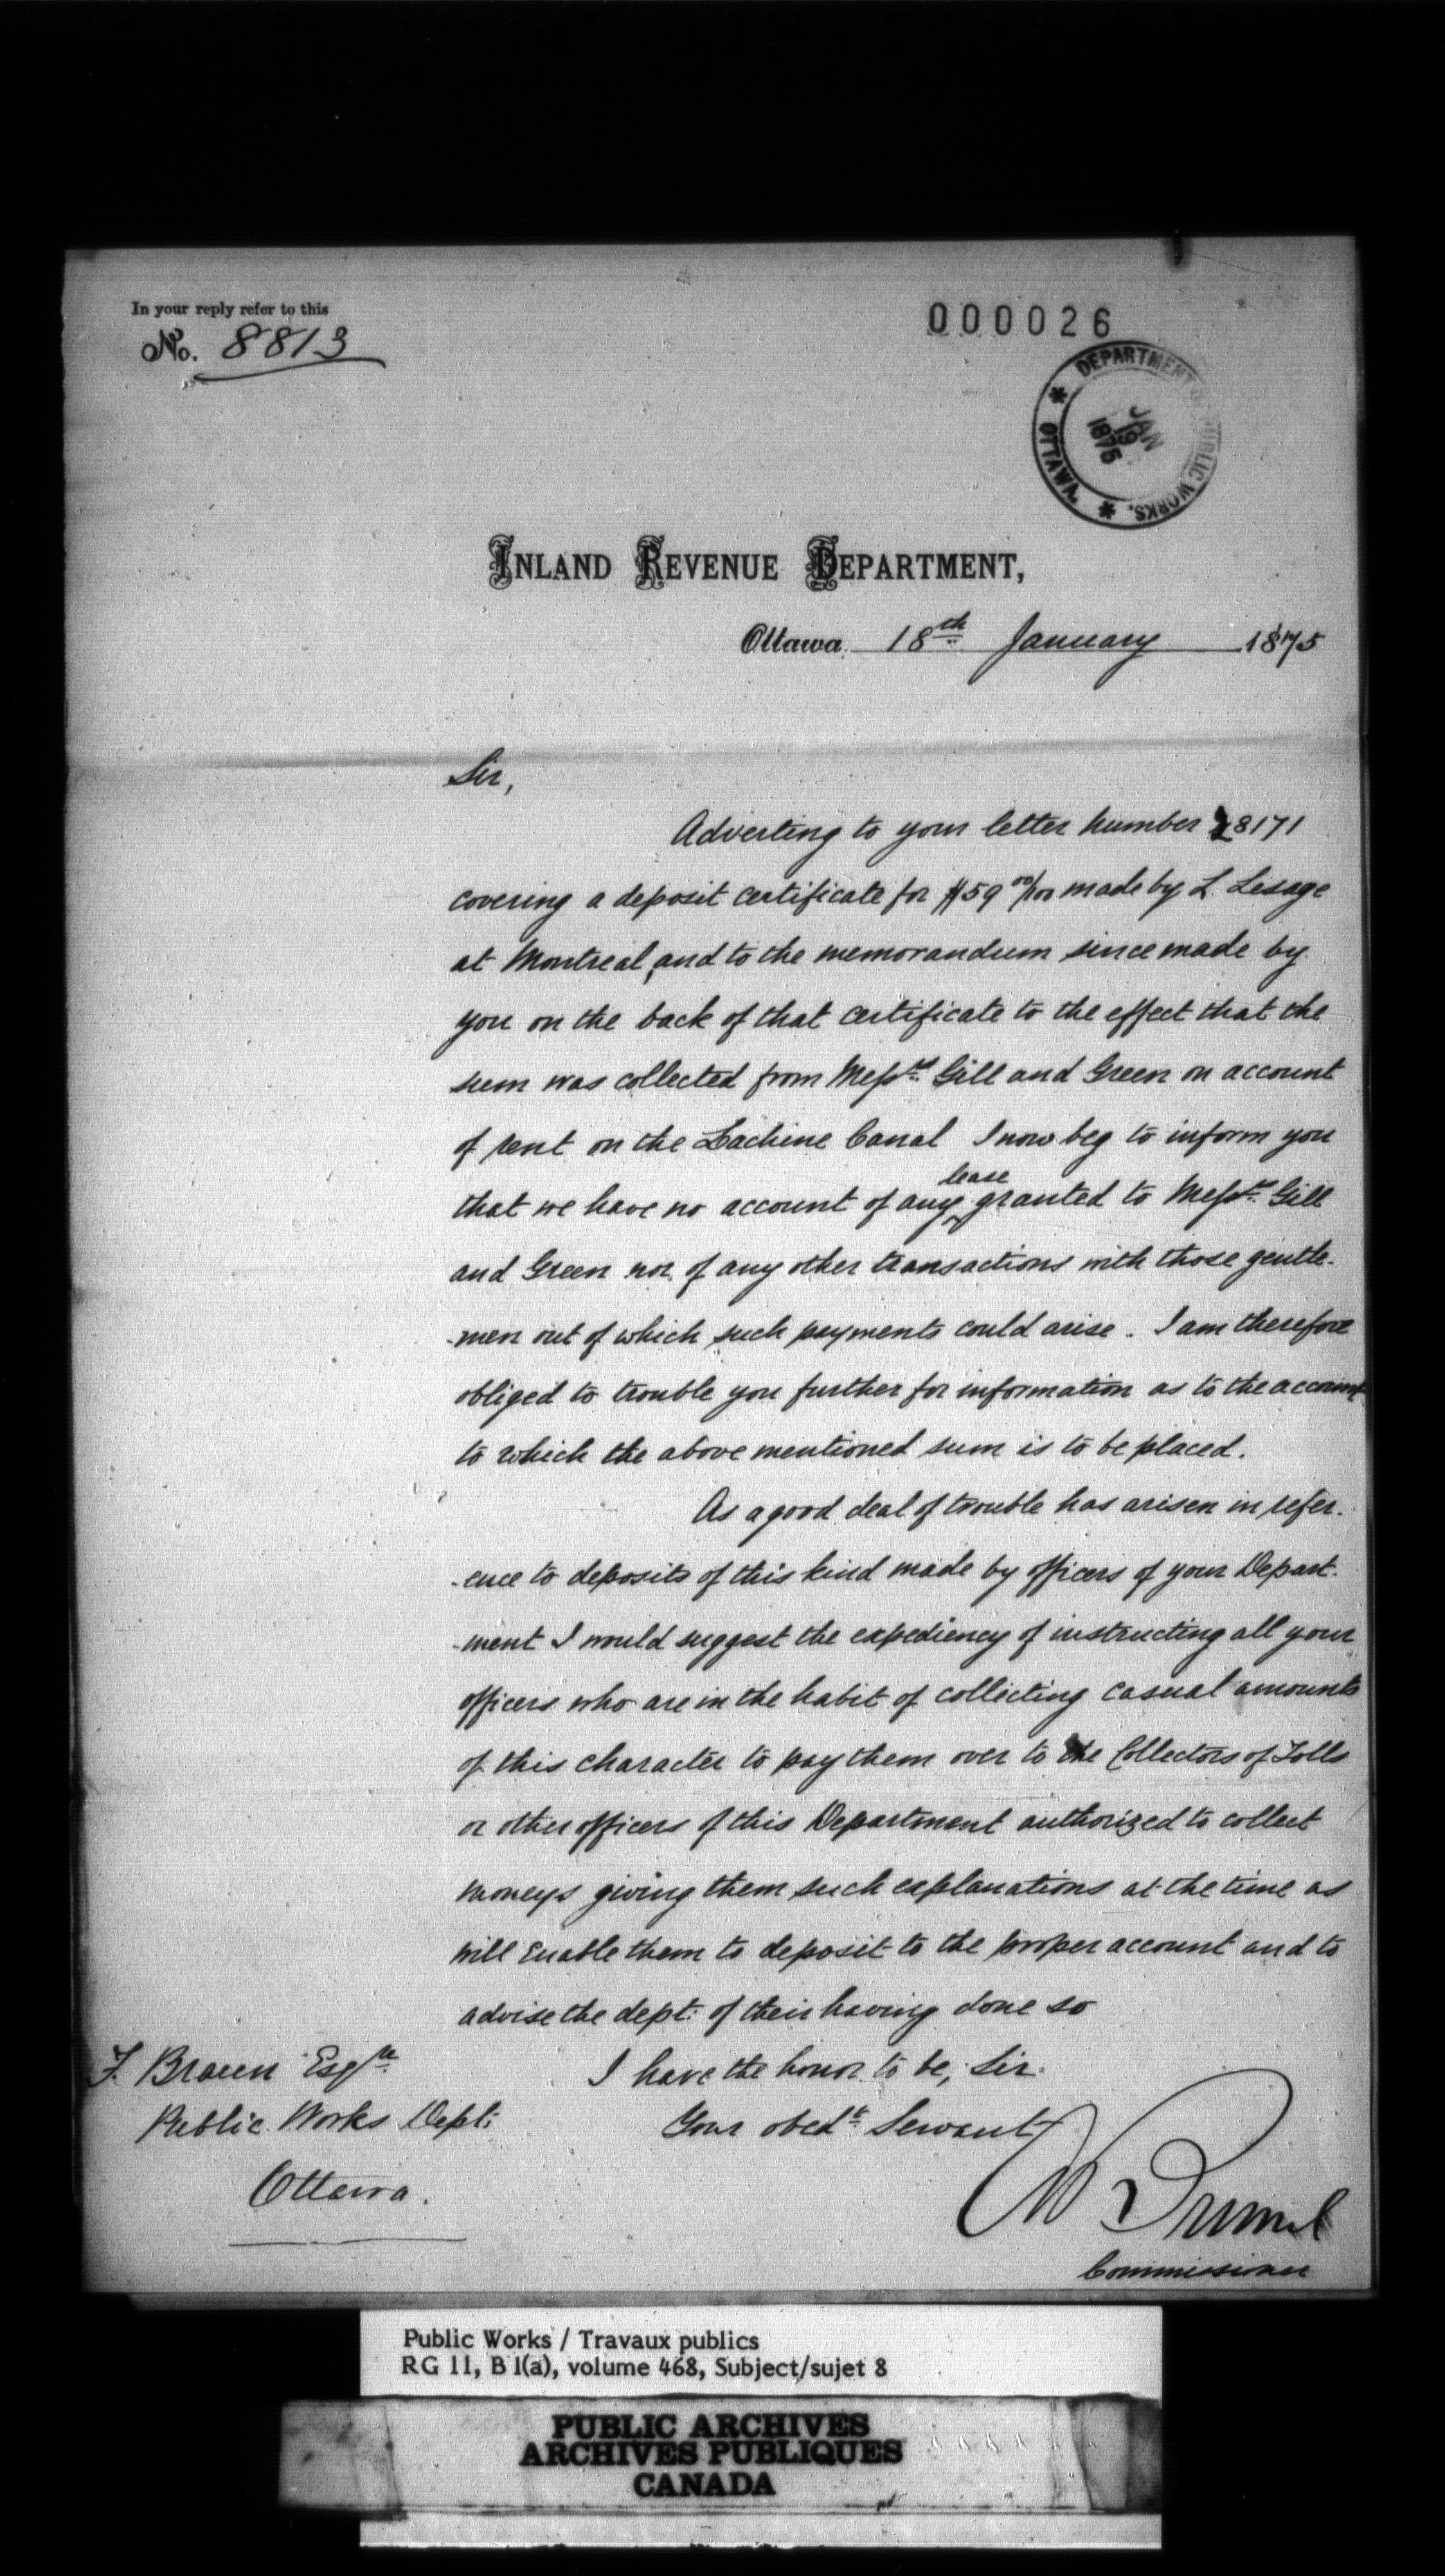 In your reply refer to this
No. 8813
000026
DEPARTMENT OF PUBLIC WORKS.
* OTTAWA *
JAN
19
1875
INLAND REVENUE DEPARTMENT,
Ottawa 18th January 1875
Sir,
Adverting to your letter number 28171
covering a deposit certificate for $59 00/100 made by L. Lesage
at Montreal, and to the memorandum since made by
you on the back of that certificate to the effect that the
sum was collected from Messrs Gill and Green on account
of rent on the Lachine Canal I now beg to inform you
lease
that we have no account of any granted to Messrs Gill
and Green nor of any other transactions with those gentle-
-men out of which such payments could arise. I am therefore
obliged to trouble you further for information as to the account
to which the above mentioned sum is to be placed.
As a good deal of trouble has arisen in refer-
-ence to deposits of this kind made by officers of your Depart-
-ment I would suggest the expediency of instructing all your
officers who are in the habit of collecting casual amounts
of this character to pay them over to the Collectors of Tolls
or other officers of this Department authorized to collect
moneys giving them such explanations at the time as
will enable them to deposit to the proper account and to
advise the dept: of their having done so
I have the honor to be, Sir.
Your obedt Servant
F. Braun Esqre
Public Works Dept:
Ottawa.
Commissioner
Public Works / Travaux publics
RG 11, B 1(a), volume 468, Subject/sujet 8
PUBLIC ARCHIVES
ARCHIVES PUBLIQUES
CANADA